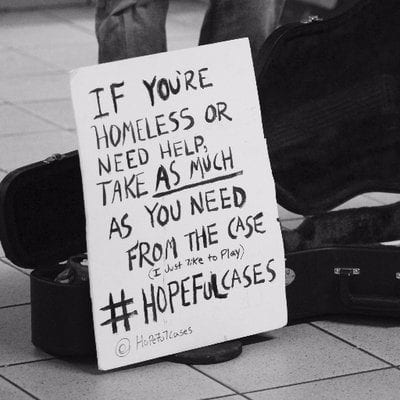 IF YOU'RE
HOMELESS OR
NEED HELP,
TAKE AS MUCH
AS YOU NEED
FROM THE CASE
(I Just like to Play)
#HOPEFULCASES
© Hopefulcases